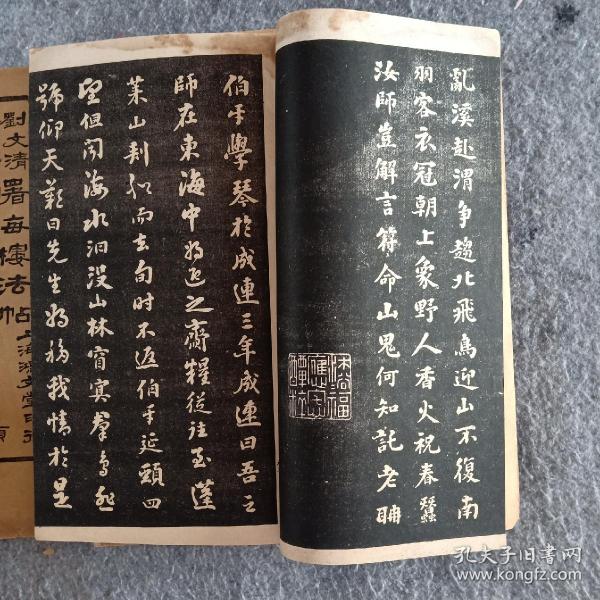 亂溪赴渭爭趨北飛鳥迎山不復南
羽客衣冠朝上象野人香火祝春蠶
汝師豈解言符命山鬼何知託老聃
伯牙學琴於成連三年成連曰吾之
師在東海中將迎之齎糧從往至蓬
萊山刺船而去旬時不返伯牙延頸四
望但聞海水汩没山林窅冥羣鳥悲
號仰天歎曰先生將移我情於是
劉文清署海樓法帖
上海
孔夫子旧书网
www.kongfz.com